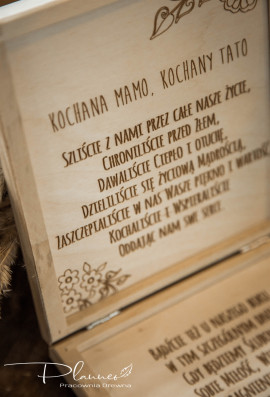 KOCHANA MAMO, KOCHANY TATO
SZLIŚCIE Z NAMI PRZEZ CAŁE NASZE ŻYCIE,
CHRONILIŚCIE PRZED ZŁEM,
DAWALIŚCIE CIEPŁO I OTUCHĘ,
DZIELILIŚCIE SIĘ ŻYCIOWĄ MĄDROŚCIĄ,
ZASZCZEPIALIŚCIE W NAS WASZE PIĘKNO I WARTOŚCI
KOCHALIŚCIE I WSPIERALIŚCIE
ODDAJĄC NAM SWE SERCE.
BĄDŹCIE TUŻ U NASZEGO BOKU
W TYM SZCZEGÓLNYM
GDY BĘDZIEMY
SOBIE MIŁOŚĆ,
Planner
Pracownia Drewna